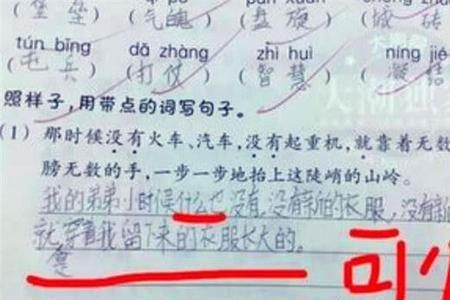 (堡垒) (气魄) (盘旋) (城砖
tún bīng dǎ zhàng zhì huì níng jié
(屯兵) (打仗) (智慧) (凝结
照样子,用带点的词写句子。
(1) 那时候没有火车、汽车,没有起重机,就靠着无数
膀无数的手,一步一步地抬上这陡峭的山岭。
我的弟弟小时候什么也没有,没有新的衣服,没有新
就穿着我留下来的衣服长大的。